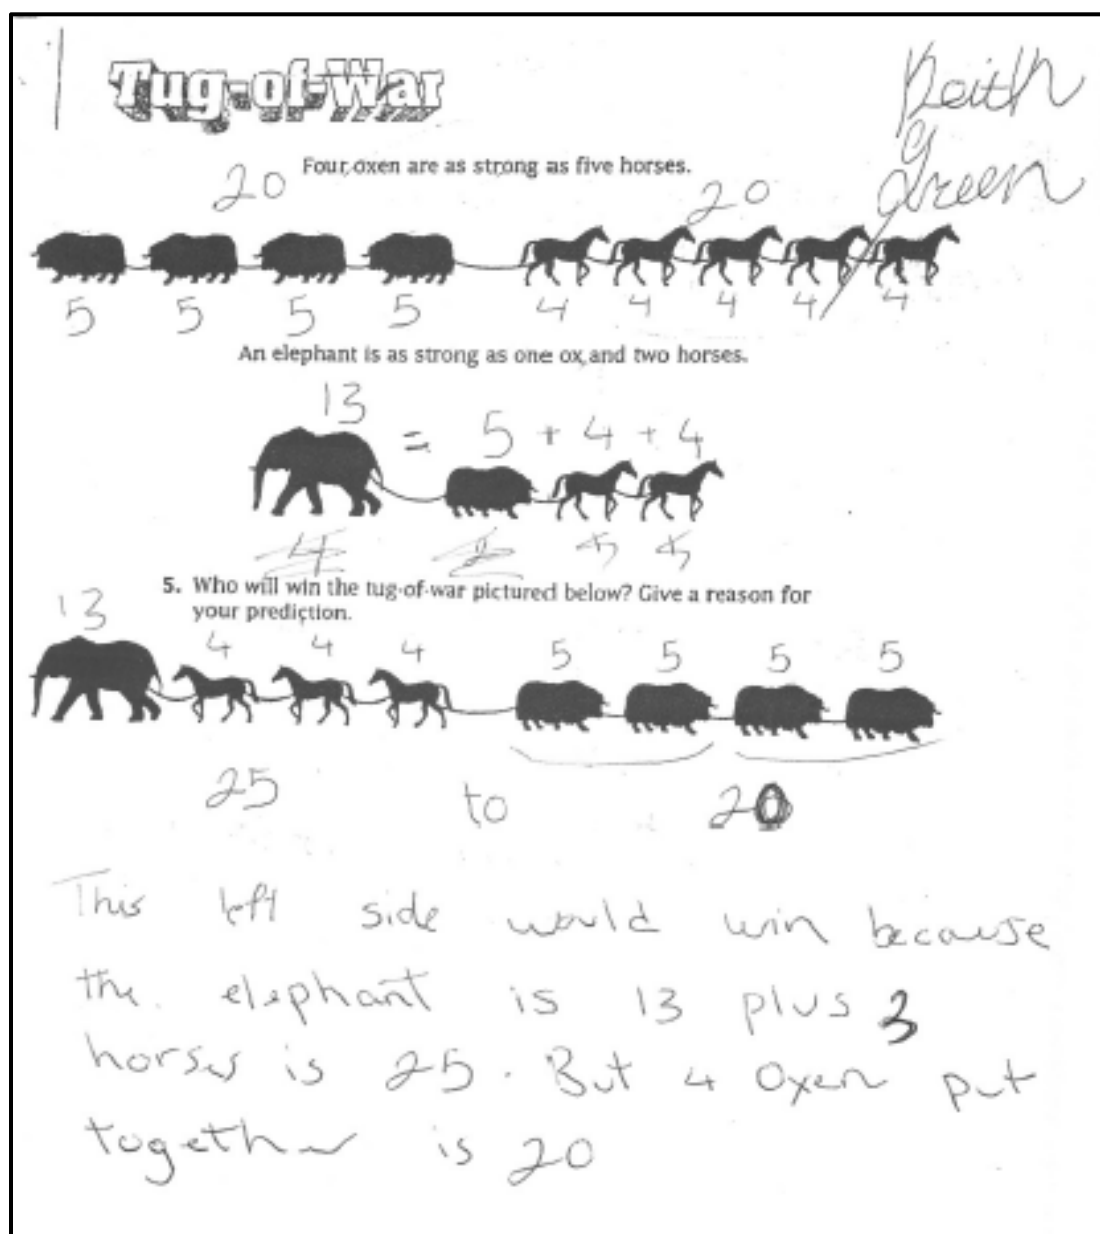 Tug-of-War
Keith
Green
Four oxen are as strong as five horses.
20 20
5 5 5 5 4 4 4 4 4
An elephant is as strong as one ox and two horses.
13 = 5 + 4 + 4
4
5. Who will win the tug-of-war pictured below? Give a reason for
your prediction.
13 4 4 4 5 5 5 5
25 to 20
This left side would win because
the elephant is 13 plus 3
horses is 25. But 4 Oxen put
together is 20